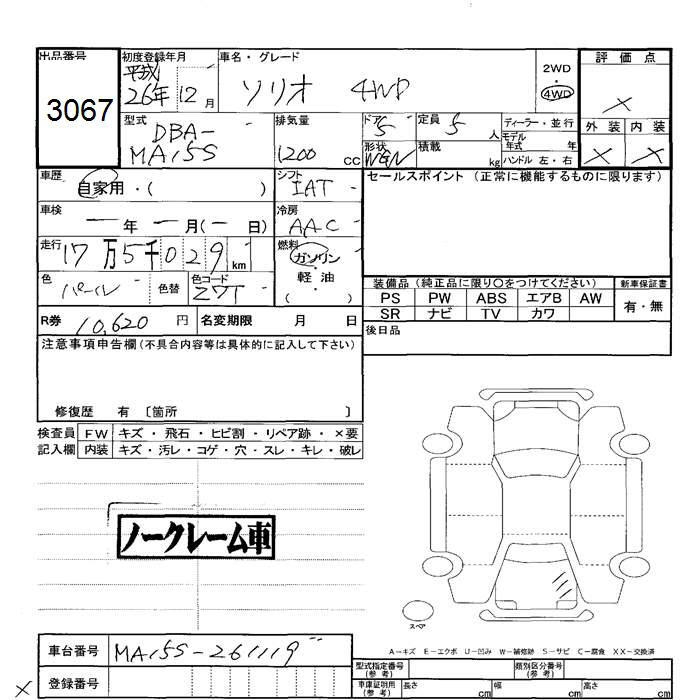 出品番号
3067
初度登録年月
平成
26年 12月
車名・グレード
ソリオ 4WD
2WD
4WD
評価点
×
外装 内装
× ×
型式
DBA-
MA15S
排気量
1200 cc
ドア
5
定員
5 人
ディーラー・並行
モデル
年式 年
形状
WGN
積載
kg
ハンドル 左・右
車歴
自家用・( )
シフト
IAT
セールスポイント (正常に機能するものに限ります)
車検
ー 年 ー 月(ー 日)
冷房
AAC
走行
17万5千029 km
燃料
ガソリン
軽油
( )
色
パール
色替
色コード
Z7T
装備品 (純正品に限り〇をつけてください)
新車保証書
PS PW ABS エアB AW
有・無
SR ナビ TV カワ
R券
10,620 円
名変期限 月 日
後日品
注意事項申告欄 (不具合内容等は具体的に記入して下さい)
修復歴 有 〔箇所 〕
検査員 FW キズ・飛石・ヒビ割・リペア跡・×要
記入欄 内装 キズ・汚レ・コゲ・穴・スレ・キレ・破レ
ノークレーム車
スペア
A－キズ E－エクボ U－凹み W－補修跡 S－サビ C－腐食 XX－交換済
車台番号
MA15S-261119
型式指定番号
(参考)
類別区分番号
(参考)
×
登録番号
車庫証明用
(参考)
長さ cm
幅 cm
高さ cm